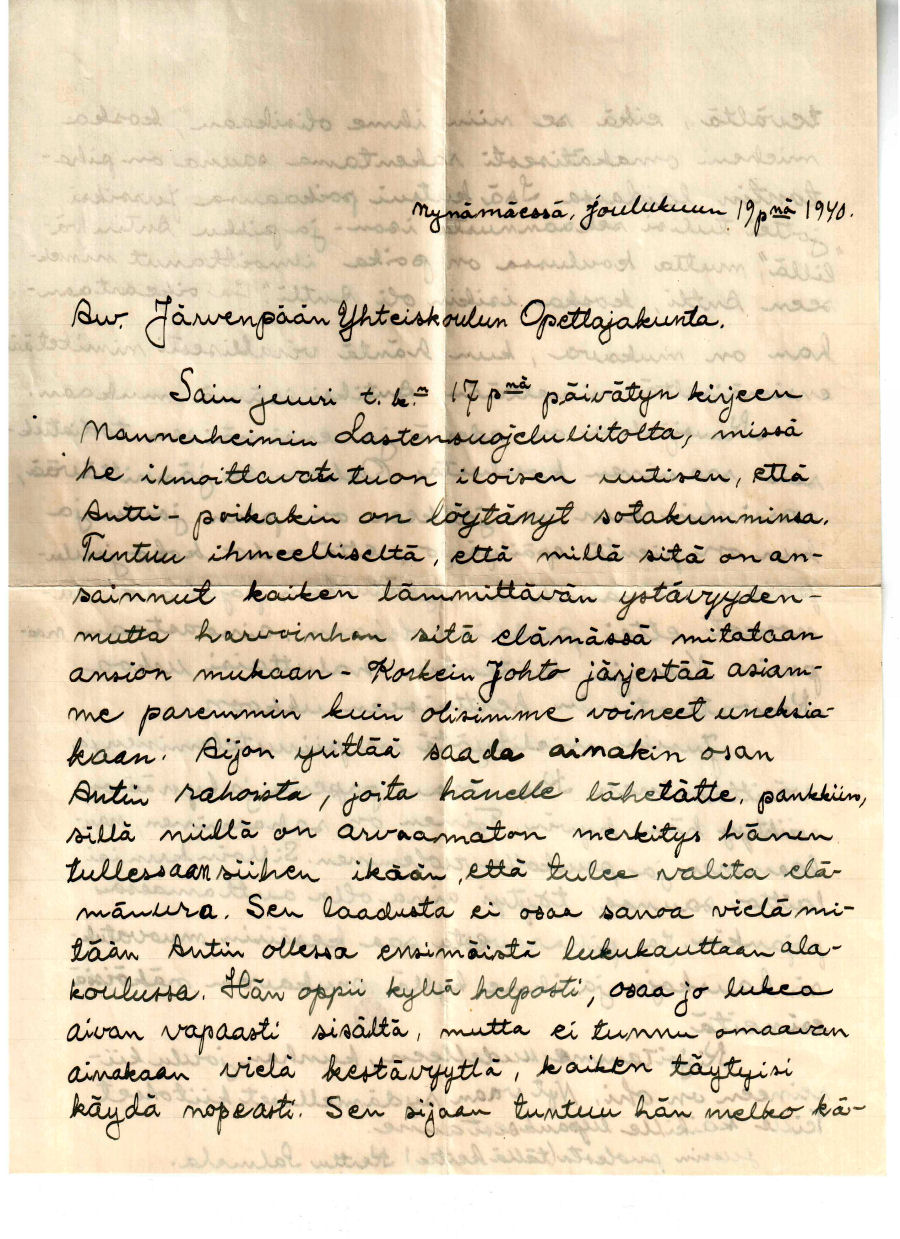 Nynämäessä, Joulukuun 19 pnä 1940.
Aw. Järvenpään Yhteiskoulun Opettajakunta.
Sain juuri t. k.n 17 pnä päivätyn kirjeen
Mannerheimin Lastensuojeluliitolta, missä
he ilmoittavat tuon iloisen uutisen, että
Antti-poikakin on löytänyt sotakumminsa.
Tuntuu ihmeelliseltä, että millä sitä on an-
sainnut kaiken lämmittävän ystävyyden-
mutta harvoinhan sitä elämässä mitataan
ansion mukaan - Korkein Johto järjestää asiam-
me paremmin kuin olisimme voineet uneksia-
kaan. Aijon yrittää saada ainakin osan
Antin rahoista, joita hänelle lähetätte, pankkiin,
sillä niillä on arvaamaton merkitys hänen
tullessaan siihen ikään, että tulee valita elä-
mänura. Sen laadusta ei osaa sanoa vielä mi-
tään Antin ollessa ensimäistä lukukauttaan ala-
koulussa. Hän oppii kyllä helposti, osaa jo lukea
aivan vapaasti sisältä, mutta ei tunnu omaavan
ainakaan vielä kestävyyttä, kaiken täytyisi
käydä nopeasti. Sen sijaan tuntuu hän melko kä-